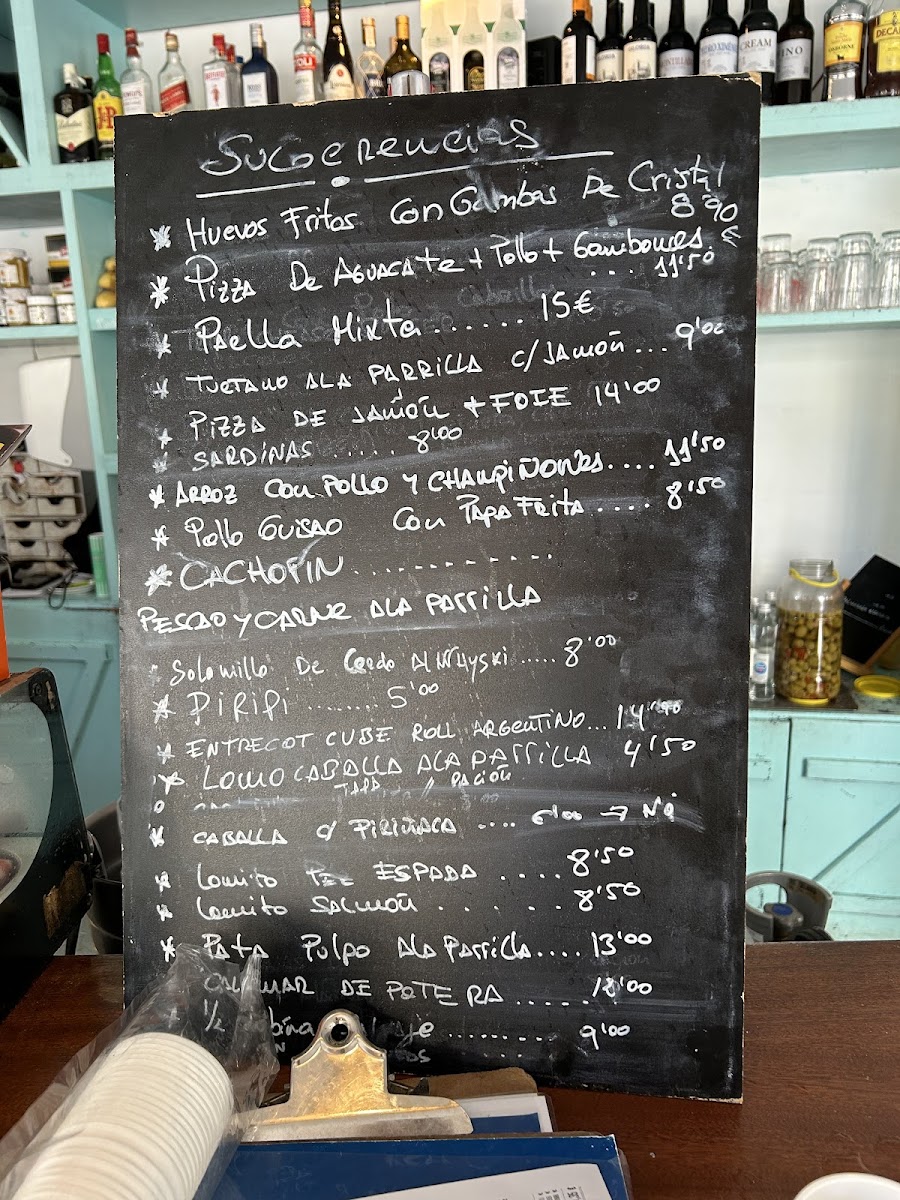 SUGERENCIAS
* HUEVOS FRITOS CON GAMBAS DE CRISTAL
8'90
* PIZZA DE AGUACATE + POLLO + GAMBONES. €
... 11'50
* PAELLA MIXTA ...... 15€
* TUETANO A LA PARRILLA C/JAMÓN ... 9'00
* PIZZA DE JAMÓN + FOIE 14'00
* SARDINAS ..... 8'00
* ARROZ CON POLLO Y CHAMPIÑONES.... 11'50
* POLLO GUISAO CON PAPA FRITA .... 8'50
* CACHOPIN ............
PESCAO Y CARNE A LA PARRILLA
Solomillo De Cerdo Al Whyski ..... 8'00
* PIRIPI ........ 5'00
* ENTRECOT CUBE ROLL ARGENTINO... 14'90
* LOMO CABALLA A LA PARRILLA 4'50
TAPA // PACION
* CABALLA C/ PIRIÑACA ....
* Lomito PEZ ESPADA .... 8'50
* Lomito SALMÓN ...... 8'50
* PATA PULPO A LA PARRILLA.... 13'00
CALAMAR DE POTERA ...... 12'00
1/2 ........ 9'00
J&B
CREAM
FINO